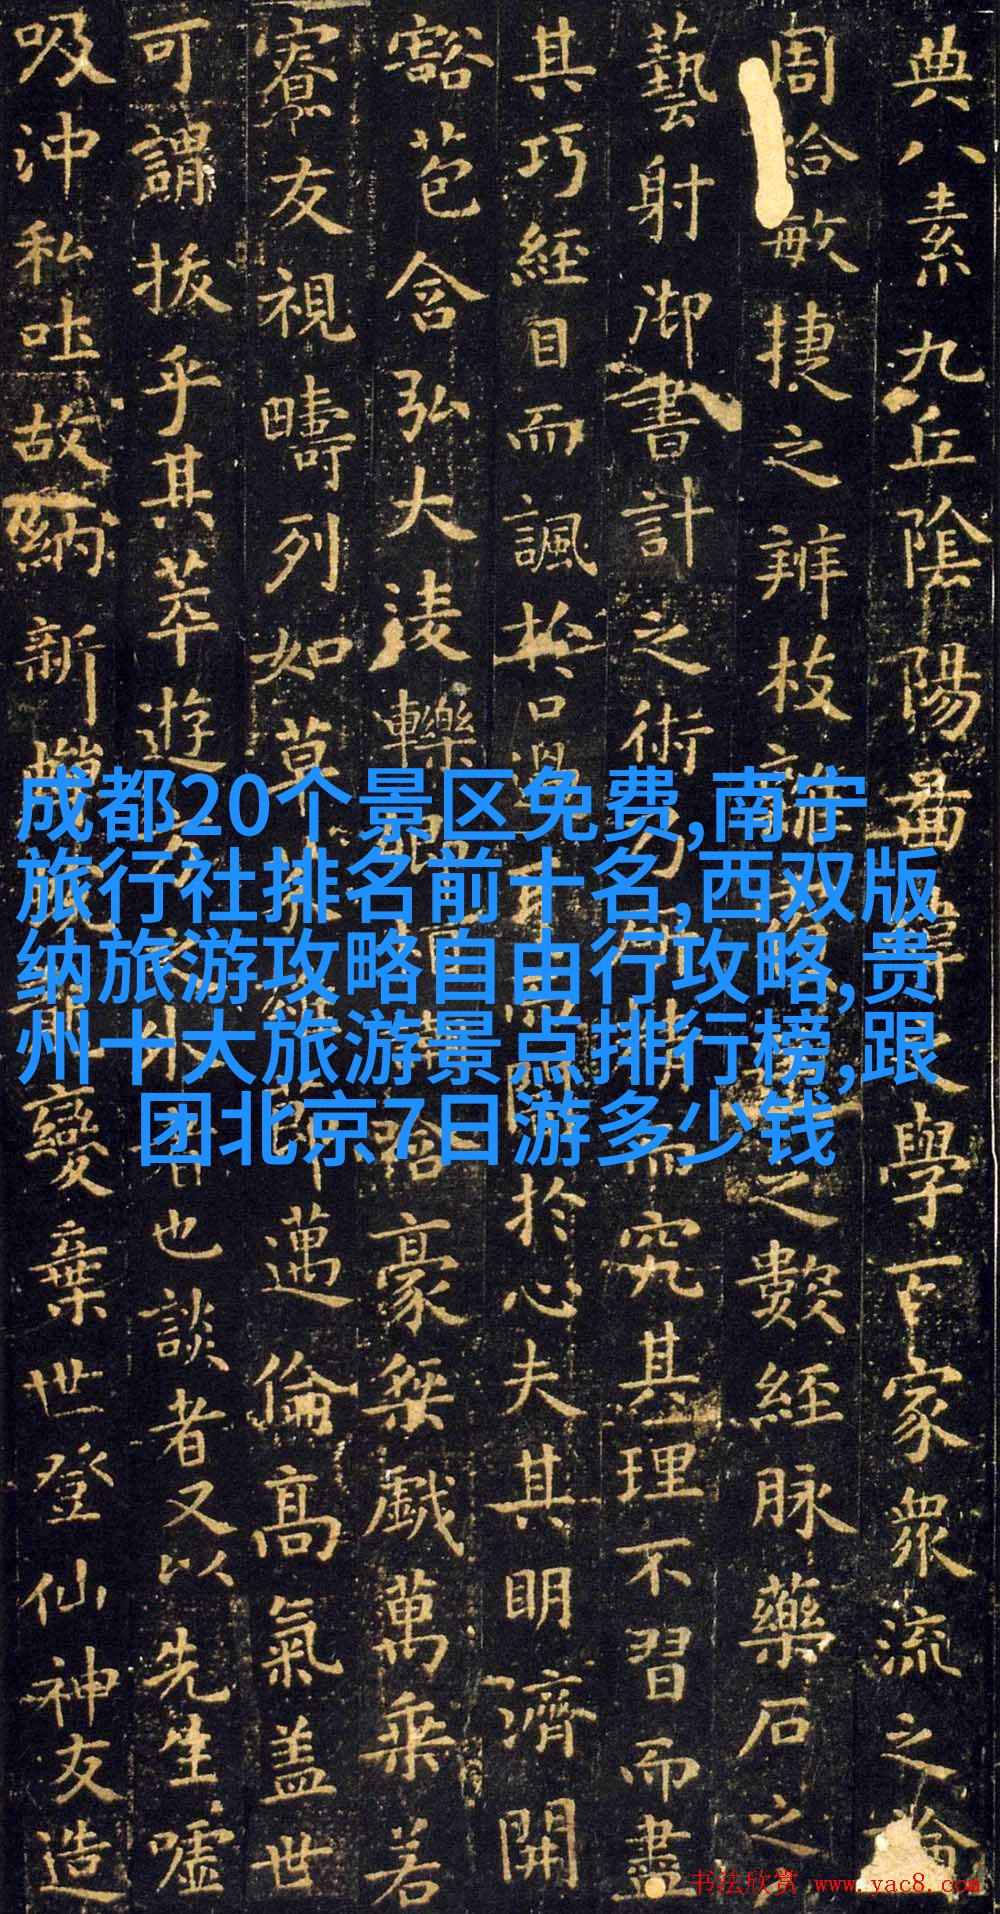 典八素九丘陰陽啚緯之學百家眾流之論
周給敏捷之辨枝之數經脉藥石之
藝射御書計之術乃究其理不習而盡
其巧經目而諷於口過耳於心夫其明濟開
豁苞含弘大淩轢哈豪桀戲萬乘若
寮友視疇列如草邁倫高氣蓋世
可謂拔乎其萃遊方外者也談者又以先生噓
吸沖和吐故納新變棄世登仙神友造
成都20个景区免费,南宁
旅行社排名前十名,西双版
纳旅游攻略自由行攻略,贵
州十大旅游景点排行榜,跟
团北京7日游多少钱
书法欣赏 www.yac8.com